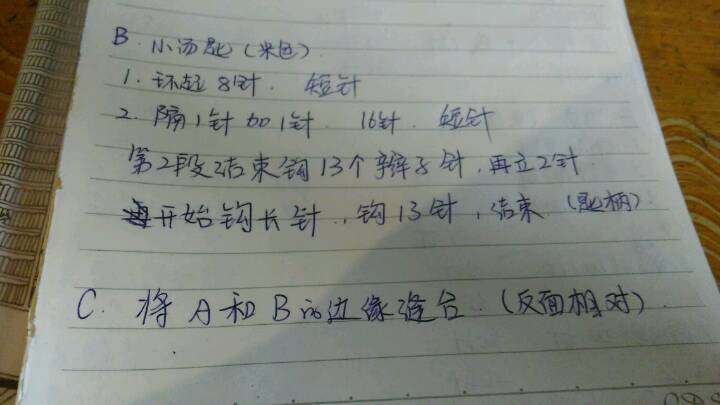 B. 小汤匙(米色).
1. 环起8针. 短针
2. 隔1针加1针. 16针. 短针
第2段结束钩13个辫子针,再立2针.
开始钩长针.,钩13针,结束.(匙柄)
C. 将A和B的边缘缝合.(反面相对).